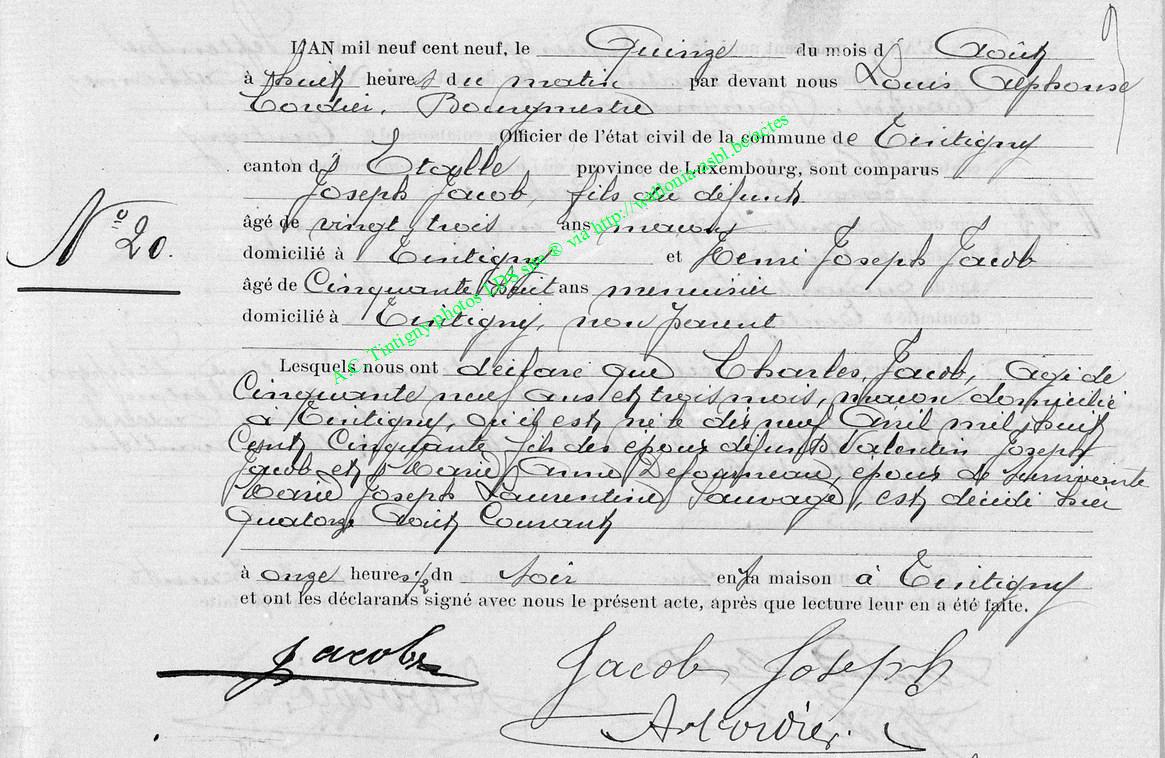 L'AN mil neuf cent neuf, le Quinze du mois d' Août
à huit heures du matin par devant nous Louis Alphonse
Cordier, Bourgmestre
Officier de l'état civil de la commune de Tintigny
canton d' Etalle province de Luxembourg, sont comparus
Joseph Jacob, fils du défunt
âgé de vingt trois ans maçon
N° 20.
domicilié à Tintigny et Henri Joseph Jacob
âgé de Cinquante huit ans menuisier
domicilié à Tintigny, non parent
Lesquels nous ont déclaré que Charles Jacob, agé de
Cinquante neuf ans et trois mois, maçon domicilié
à Tintigny, où il est né le dix neuf Avril mil huit
Cent Cinquante fils des époux défunts Valentin Joseph
Jacob et Marie Anne époux de survivante
Marie Joseph Laurentine Sauvage, est décédé hier
quatorze Août Courant
à onze heures 1/2 du soir en sa maison à Tintigny
et ont les déclarants signé avec nous le présent acte, après que lecture leur en a été faite.
Jacob Jacob Joseph
A Cordier
A.C. Tintigny photos via http://wallonia-asbl.be/actes